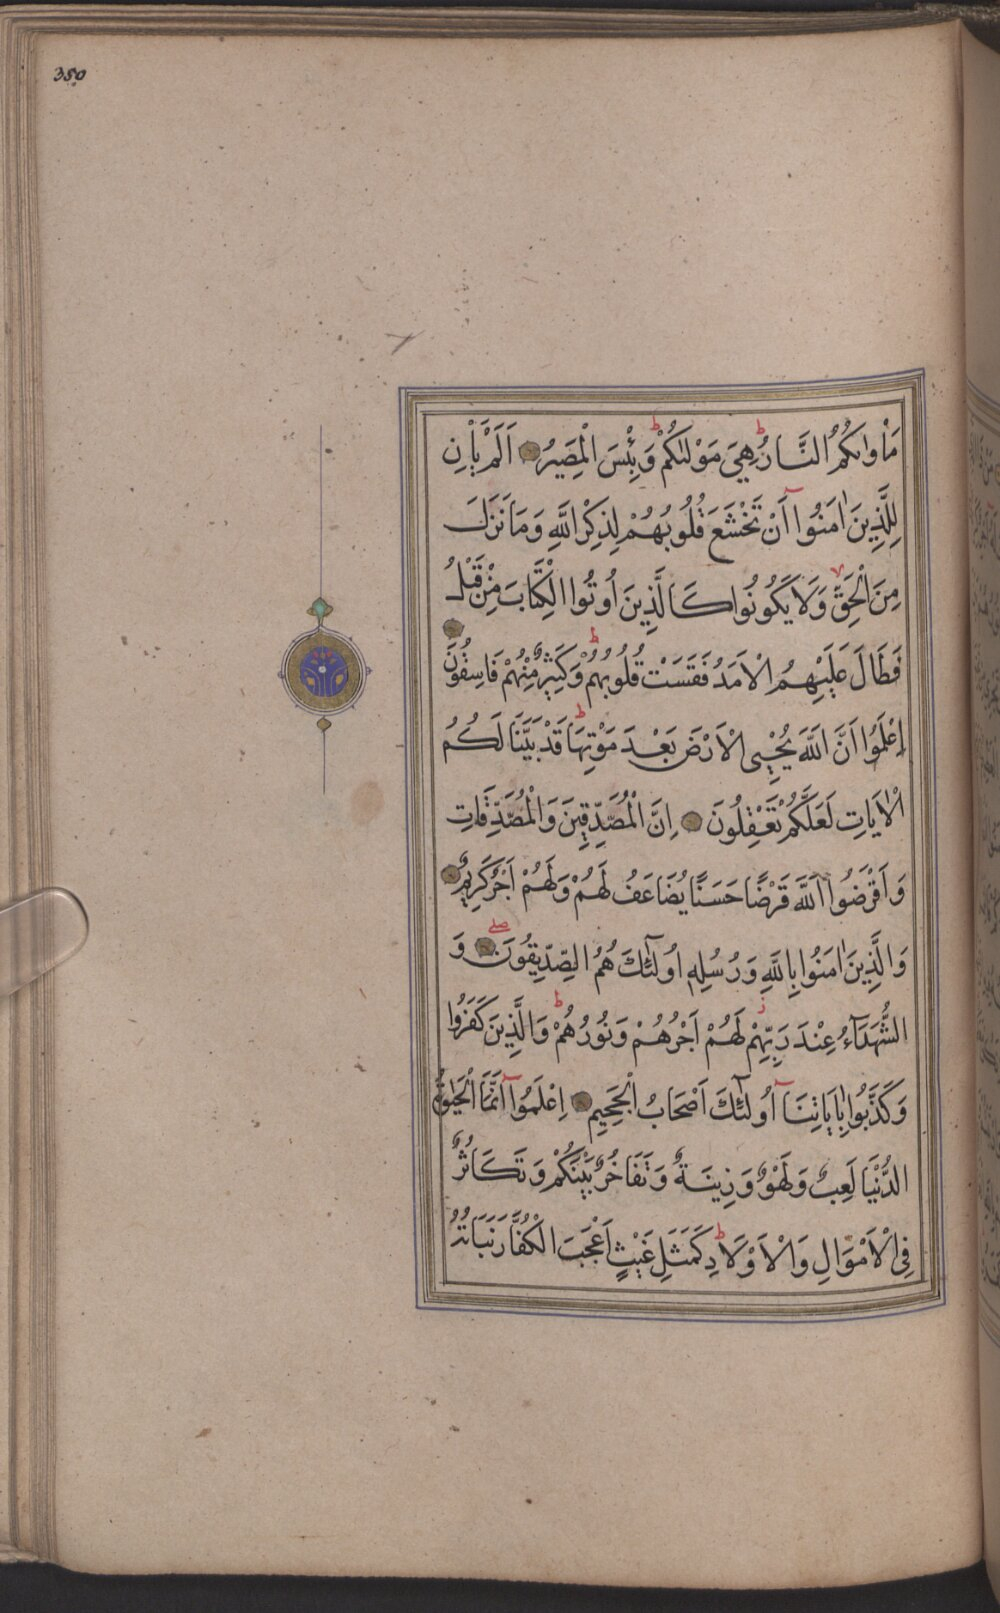 350
مَأْوٰىكُمُ النَّارُ ط هِيَ مَوْلٰىكُمْ ط وَبِئْسَ الْمَصِيرُ اَلَمْ يَأْنِ
لِلَّذِينَ اٰمَنُوا اَنْ تَخْشَعَ قُلُوبُهُمْ لِذِكْرِ اللَّهِ وَمَا نَزَلَ
مِنَ الْحَقِّ وَلَا يَكُونُوا كَالَّذِينَ اُوتُوا الْكِتَابَ مِنْ قَبْلُ
فَطَالَ عَلَيْهِمُ الْاَمَدُ فَقَسَتْ قُلُوبُهُمْ ط وَكَثِيرٌ مِنْهُمْ فَاسِقُونَ
اِعْلَمُوا اَنَّ اللَّهَ يُحْيِي الْاَرْضَ بَعْدَ مَوْتِهَا ط قَدْ بَيَّنَّا لَكُمُ
الْاٰيَاتِ لَعَلَّكُمْ تَعْقِلُونَ اِنَّ الْمُصَّدِّقِينَ وَالْمُصَّدِّقَاتِ
وَاَقْرَضُوا اللَّهَ قَرْضًا حَسَنًا يُضَاعَفُ لَهُمْ وَلَهُمْ اَجْرٌ كَرِيمٌ
وَالَّذِينَ اٰمَنُوا بِاللَّهِ وَرُسُلِهِ اُولٰئِكَ هُمُ الصِّدِّيقُونَ صلے وَ
الشُّهَدَاءُ عِنْدَ رَبِّهِمْ ز لَهُمْ اَجْرُهُمْ وَنُورُهُمْ ط وَالَّذِينَ كَفَرُوا
وَكَذَّبُوا بِاٰيَاتِنَا اُولٰئِكَ اَصْحَابُ الْجَحِيمِ اِعْلَمُوا اَنَّمَا الْحَيٰوةُ
الدُّنْيَا لَعِبٌ وَلَهْوٌ وَزِينَةٌ وَتَفَاخُرٌ بَيْنَكُمْ وَتَكَاثُرٌ
فِي الْاَمْوَالِ وَالْاَوْلَادِ ط كَمَثَلِ غَيْثٍ اَعْجَبَ الْكُفَّارَ نَبَاتُهُ